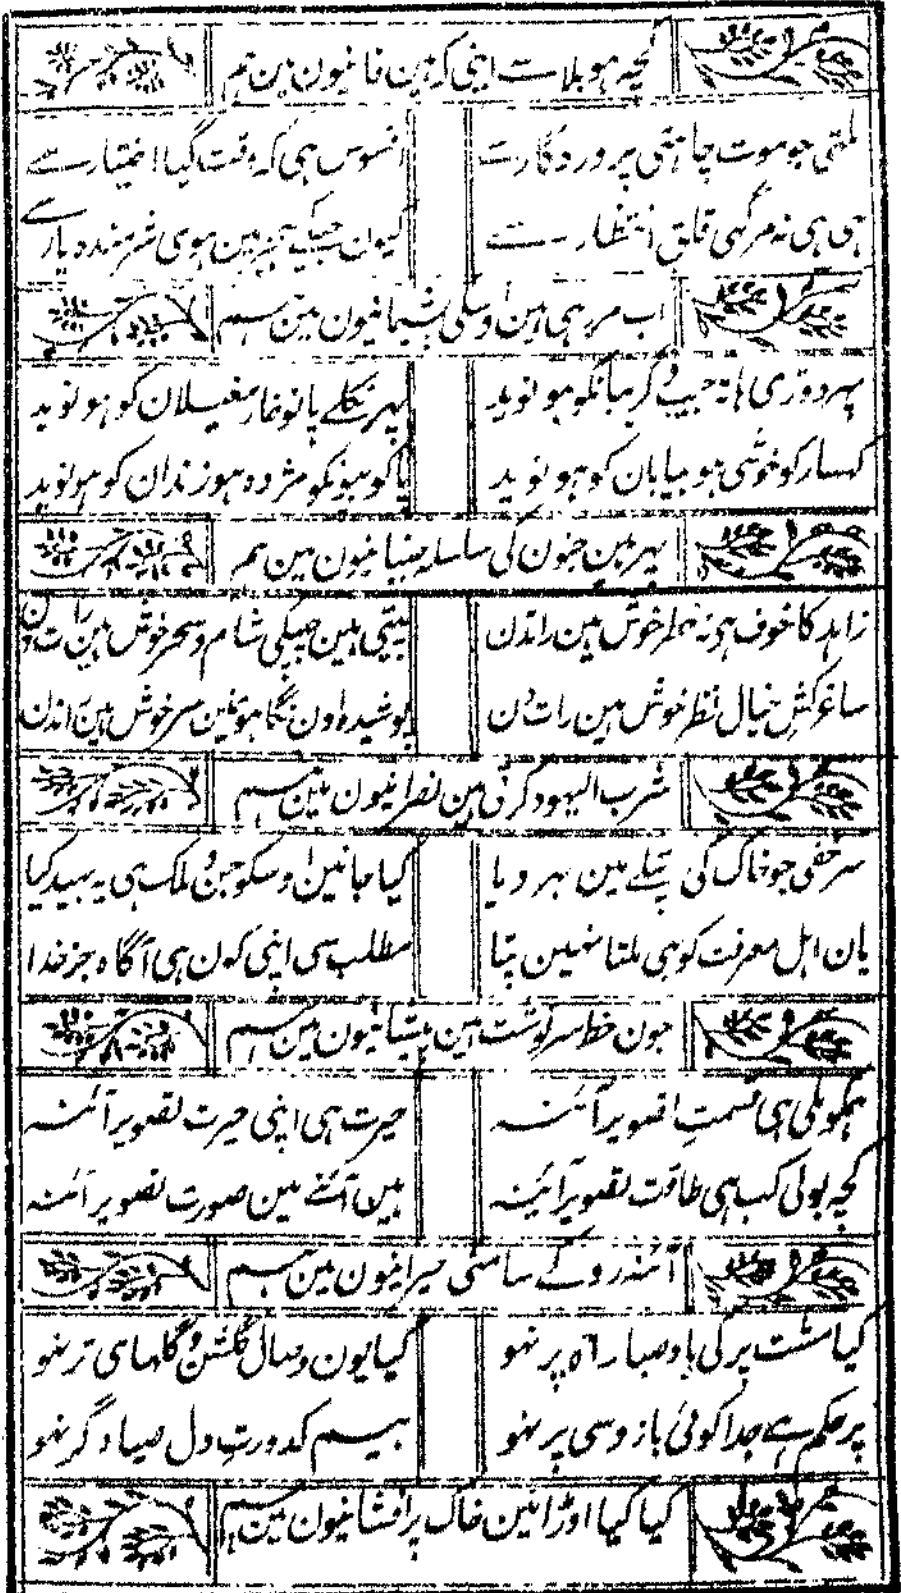 کچھ ہو بلا سے اپنی کہ ہین فانیون مین ہم
ملتی جو موت چاہتی پروردگار سے افسوس ہی کہ وقت گیا اختیار سے
جی ہی نہ مر گئی قلق انتظار سے کیون جیکے ہجر مین ہوی شرمندہ یار سے
اب مر رہی ہین اوسکی پشیمانیون مین ہم
پہر دوڑی ہاتہ جیب و گریبانکو ہو نوید پہر نکلے پانو خار مغیلان کو ہو نوید
کہسار کو خوشی ہو بیابان کو ہو نوید پاکوبیونکو مژدہ ہو زندان کو ہو نوید
پہر ہین جنون کی سلسلہ جنبانیون مین ہم
زاہد کا خوف ہی نہ خطر خوش ہین راتدن پیتی ہین چپکی شام و سحر خوش ہین رات دن
ساغر کش خیال نظر خوش ہین رات دن پوشیدہ اون نگاہونمین سرخوش ہین راتدن
شرب الیہود کرتی ہین نصرانیون مین ہم
سر خفی جو خاک کی پتلے مین بہر دیا کیا جانین اوسکو جن و ملک ہی یہ بہید کیا
یان اہل معرفت کو ہی ملتا نہین پتا مطلب سی اپنی کون ہی آگاہ جز خدا
جون خط سرنوشت ہین پیشانیون مین ہم
ہمکو ملی ہی قسمت تصویر آئنہ حیرت ہی اپنی حیرت تصویر آئنہ
کچہ بولی کب ہی طاقت تصویر آئینہ ہین آئنے مین صورت تصویر آئنہ
آئنہ روکے سامنی حیرانیون مین ہم
کیا مشت پر کی باد صبا راہ پر نہو کیا یون وصال گلشن و گلہای تر نہو
پر حکم ہے جدا کوئی بازو سی پر نہو بیم کدورت دل صیاد گر نہو
کیا کیا اوڑائین خاک پر افشانیون مین ہم